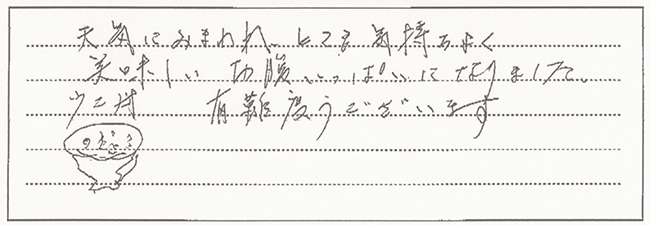 天気にみまわれ、とても気持ちよく
美味しい 切腹いっぱいになりました。
ウニ丼 有難度うございます